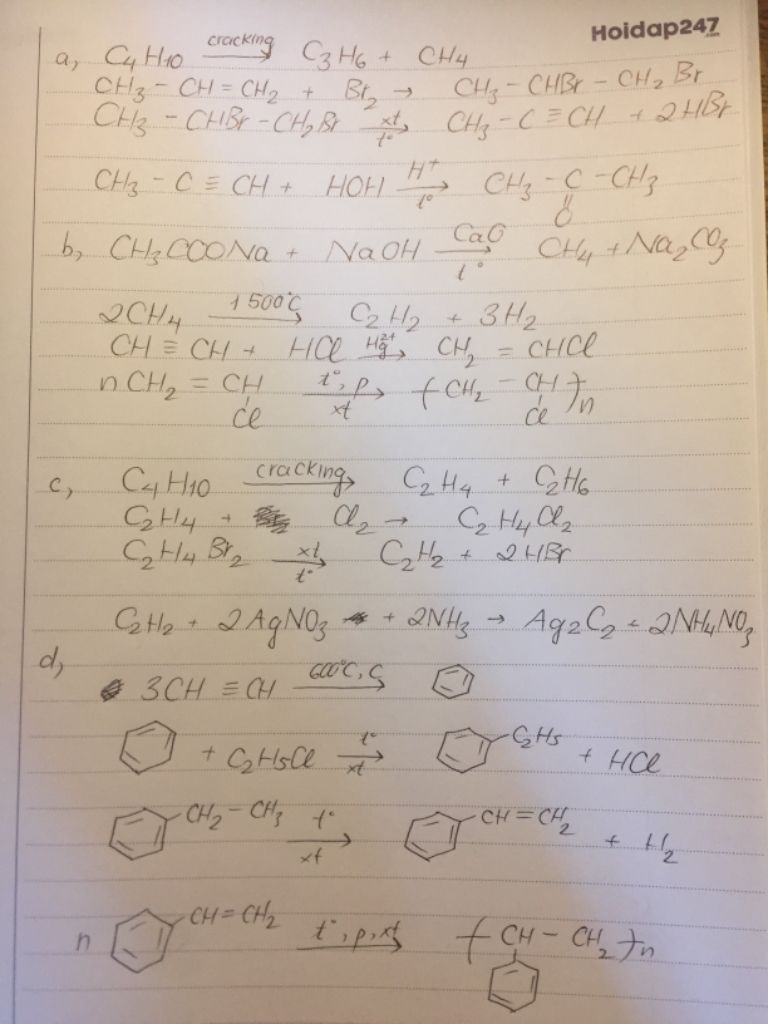 Hoidap247
.com
a, C4H10 cracking → C3H6 + CH4
CH3 - CH = CH2 + Br2 → CH3 - CHBr - CH2Br
CH3 - CHBr - CH2Br xt → t° CH3 - C ≡ CH + 2HBr
CH3 - C ≡ CH + HOH H+ → t° CH3 - C - CH3
O
b, CH3COONa + NaOH CaO → t° CH4 + Na2CO3
2CH4 1500°C → C2H2 + 3H2
CH ≡ CH + HCl Hg2+ → CH2 = CHCl
n CH2 = CH t°, p → xt ( CH2 - CH )n
Cl Cl
c, C4H10 cracking → C2H4 + C2H6
C2H4 + Cl2 → C2H4Cl2
C2H4Br2 xt → t° C2H2 + 2HBr
C2H2 + 2AgNO3 + 2NH3 → Ag2C2 + 2NH4NO3
d,
3CH ≡ CH 600°C, C →
+ C2H5Cl t° → xt C2H5 + HCl
CH2 - CH3 t° → xt CH = CH2 + H2
n CH = CH2 t°, p, xt → ( CH - CH2 )n